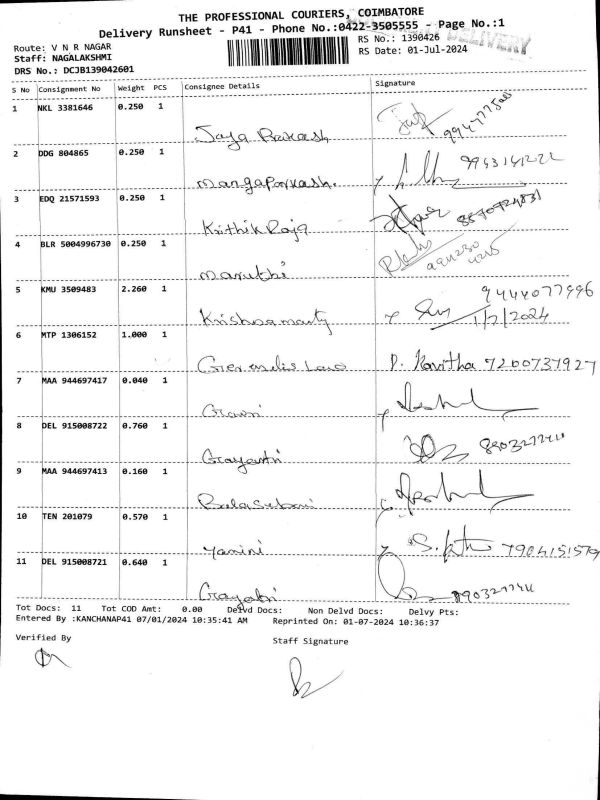 THE PROFESSIONAL COURIERS, COIMBATORE
Delivery Runsheet - P41 - Phone No.:0422-3505555 - Page No.:1
DELIVERY
Route: V N R NAGAR
RS No.: 1390426
Staff: NAGALAKSHMI
RS Date: 01-Jul-2024
DRS No.: DCJB139042601
S No Consignment No Weight PCS Consignee Details Signature
1 NKL 3381646 0.250 1
Jaya Prikash
2 DDG 804865 0.250 1
Mangaporkash.
3 EDQ 21571593 0.250 1
Krithik Raja
4 BLR 5004996730 0.250 1
Maruthi
5 KMU 3509483 2.260 1 9444077996
Krishnamarty 1/7/2024
6 MTP 1306152 1.000 1
P. Kavitha 7200737927
7 MAA 944697417 0.040 1
Gowri
8 DEL 915008722 0.760 1
Gayatri
9 MAA 944697413 0.160 1
Balasubani
10 TEN 201079 0.570 1
Yamini 7904151579
11 DEL 915008721 0.640 1
Gayatri
Tot Docs: 11 Tot COD Amt: 0.00 Delvd Docs: Non Delvd Docs: Delvy Pts:
Entered By :KANCHANAP41 07/01/2024 10:35:41 AM Reprinted On: 01-07-2024 10:36:37
Verified By Staff Signature